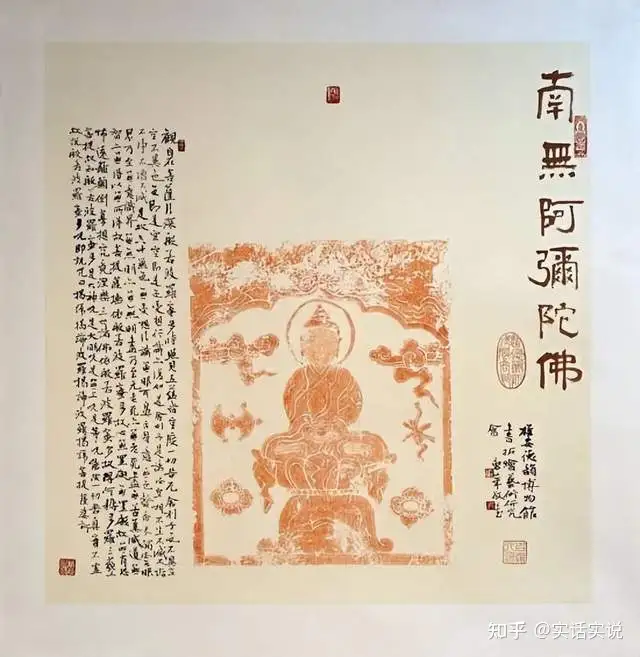 南無阿彌陀佛
雄安德韻博物館
書拓繪藝術研究
會
觀自在菩薩行深般若波羅蜜多時照見五蘊皆空度一切苦厄舍利子色不異空
空不異色色即是空空即是色受想行識亦復如是舍利子是諸法空相不生不滅不垢
不淨不增不減是故空中無色無受想行識無眼耳鼻舌身意無色聲香味觸法無眼
界乃至無意識界無無明亦無無明盡乃至無老死亦無老死盡無苦集滅道無
智亦無得以無所得故菩提薩埵依般若波羅蜜多故心無罣礙無罣礙故無有恐
怖遠離顛倒夢想究竟涅槃三世諸佛依般若波羅蜜多故得阿耨多羅三藐三
菩提故知般若波羅蜜多是大神咒是大明咒是無上咒是無等等咒能除一切苦真實不虛
故說般若波羅蜜多咒即說咒曰揭諦揭諦波羅揭諦波羅僧揭諦菩提薩婆訶
知乎 @实话实说